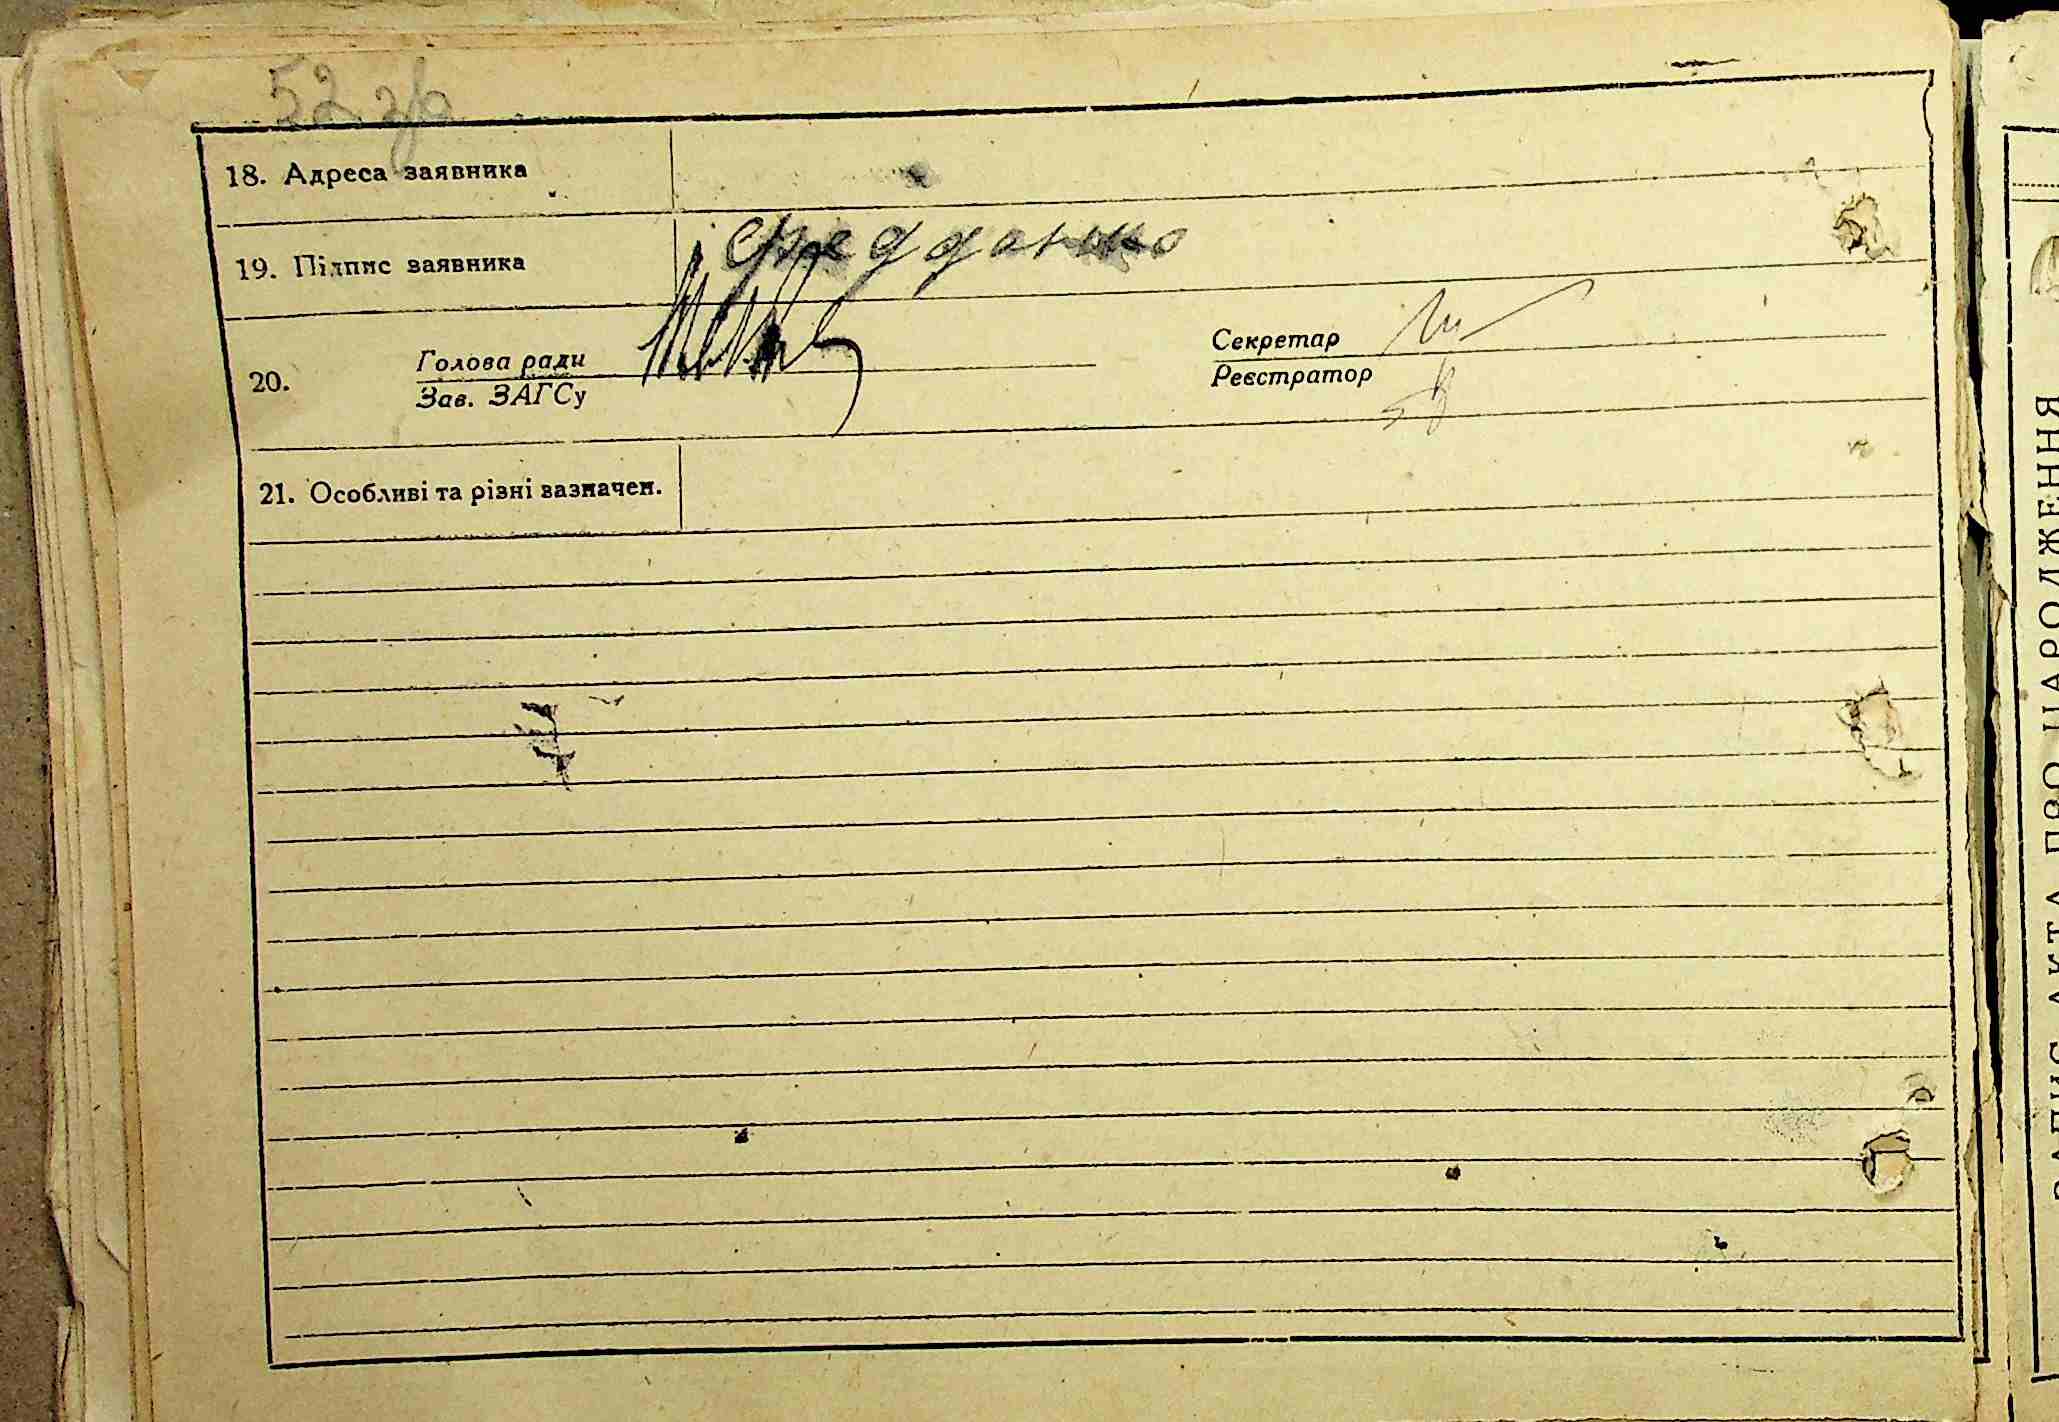 52 зв
18. Адреса заявника
19. Підпис заявника
20. Голова ради
Зав. ЗАГСу
Секретар
Реєстратор
21. Особливі та різні зазначен.
ЗАПИС АКТА ПРО НАРОДЖЕННЯ